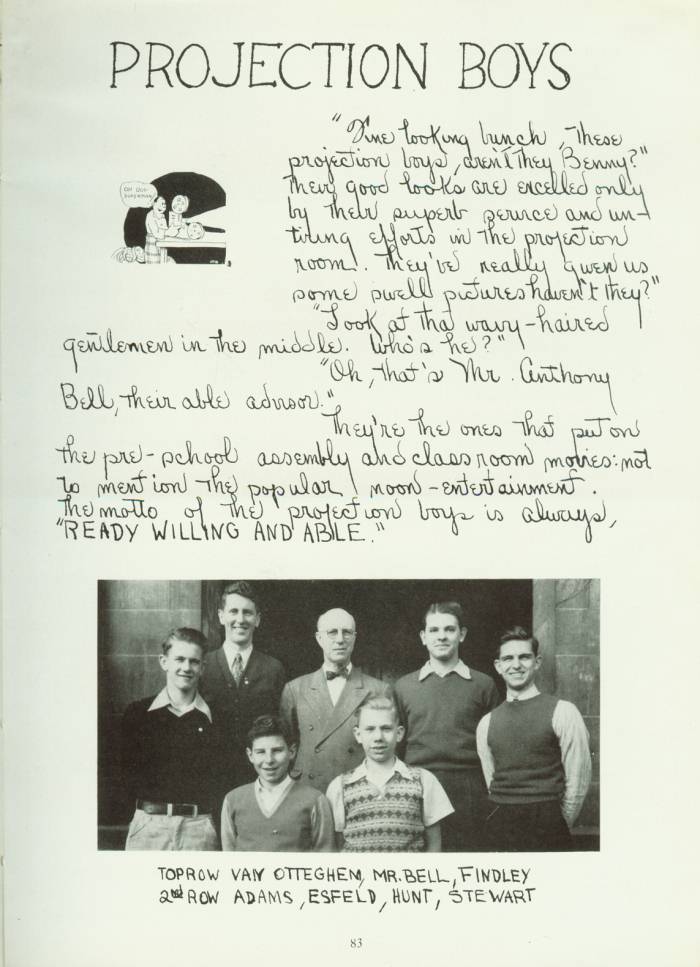 PROJECTION BOYS
"Fine looking bunch, These
projection boys, aren't they Benny?"
Their good looks are excelled only
by their superb service and un-
tiring efforts in the projection
room. They've really given us
some swell pictures haven't they?"
"Look at tha wavy-haired
gentlemen in the middle. Who's he?"
"Oh, that's Mr. Anthony
Bell, their able advisor."
They're the ones that put on
the pre-school assembly and classroom movies: not
to mention the popular noon-entertainment.
The motto of the projection boys is always,
"READY WILLING AND ABLE."
TOPROW VAN OTTEGHEM, MR. BELL, FINDLEY
2nd ROW ADAMS, ESFELD, HUNT, STEWART
83